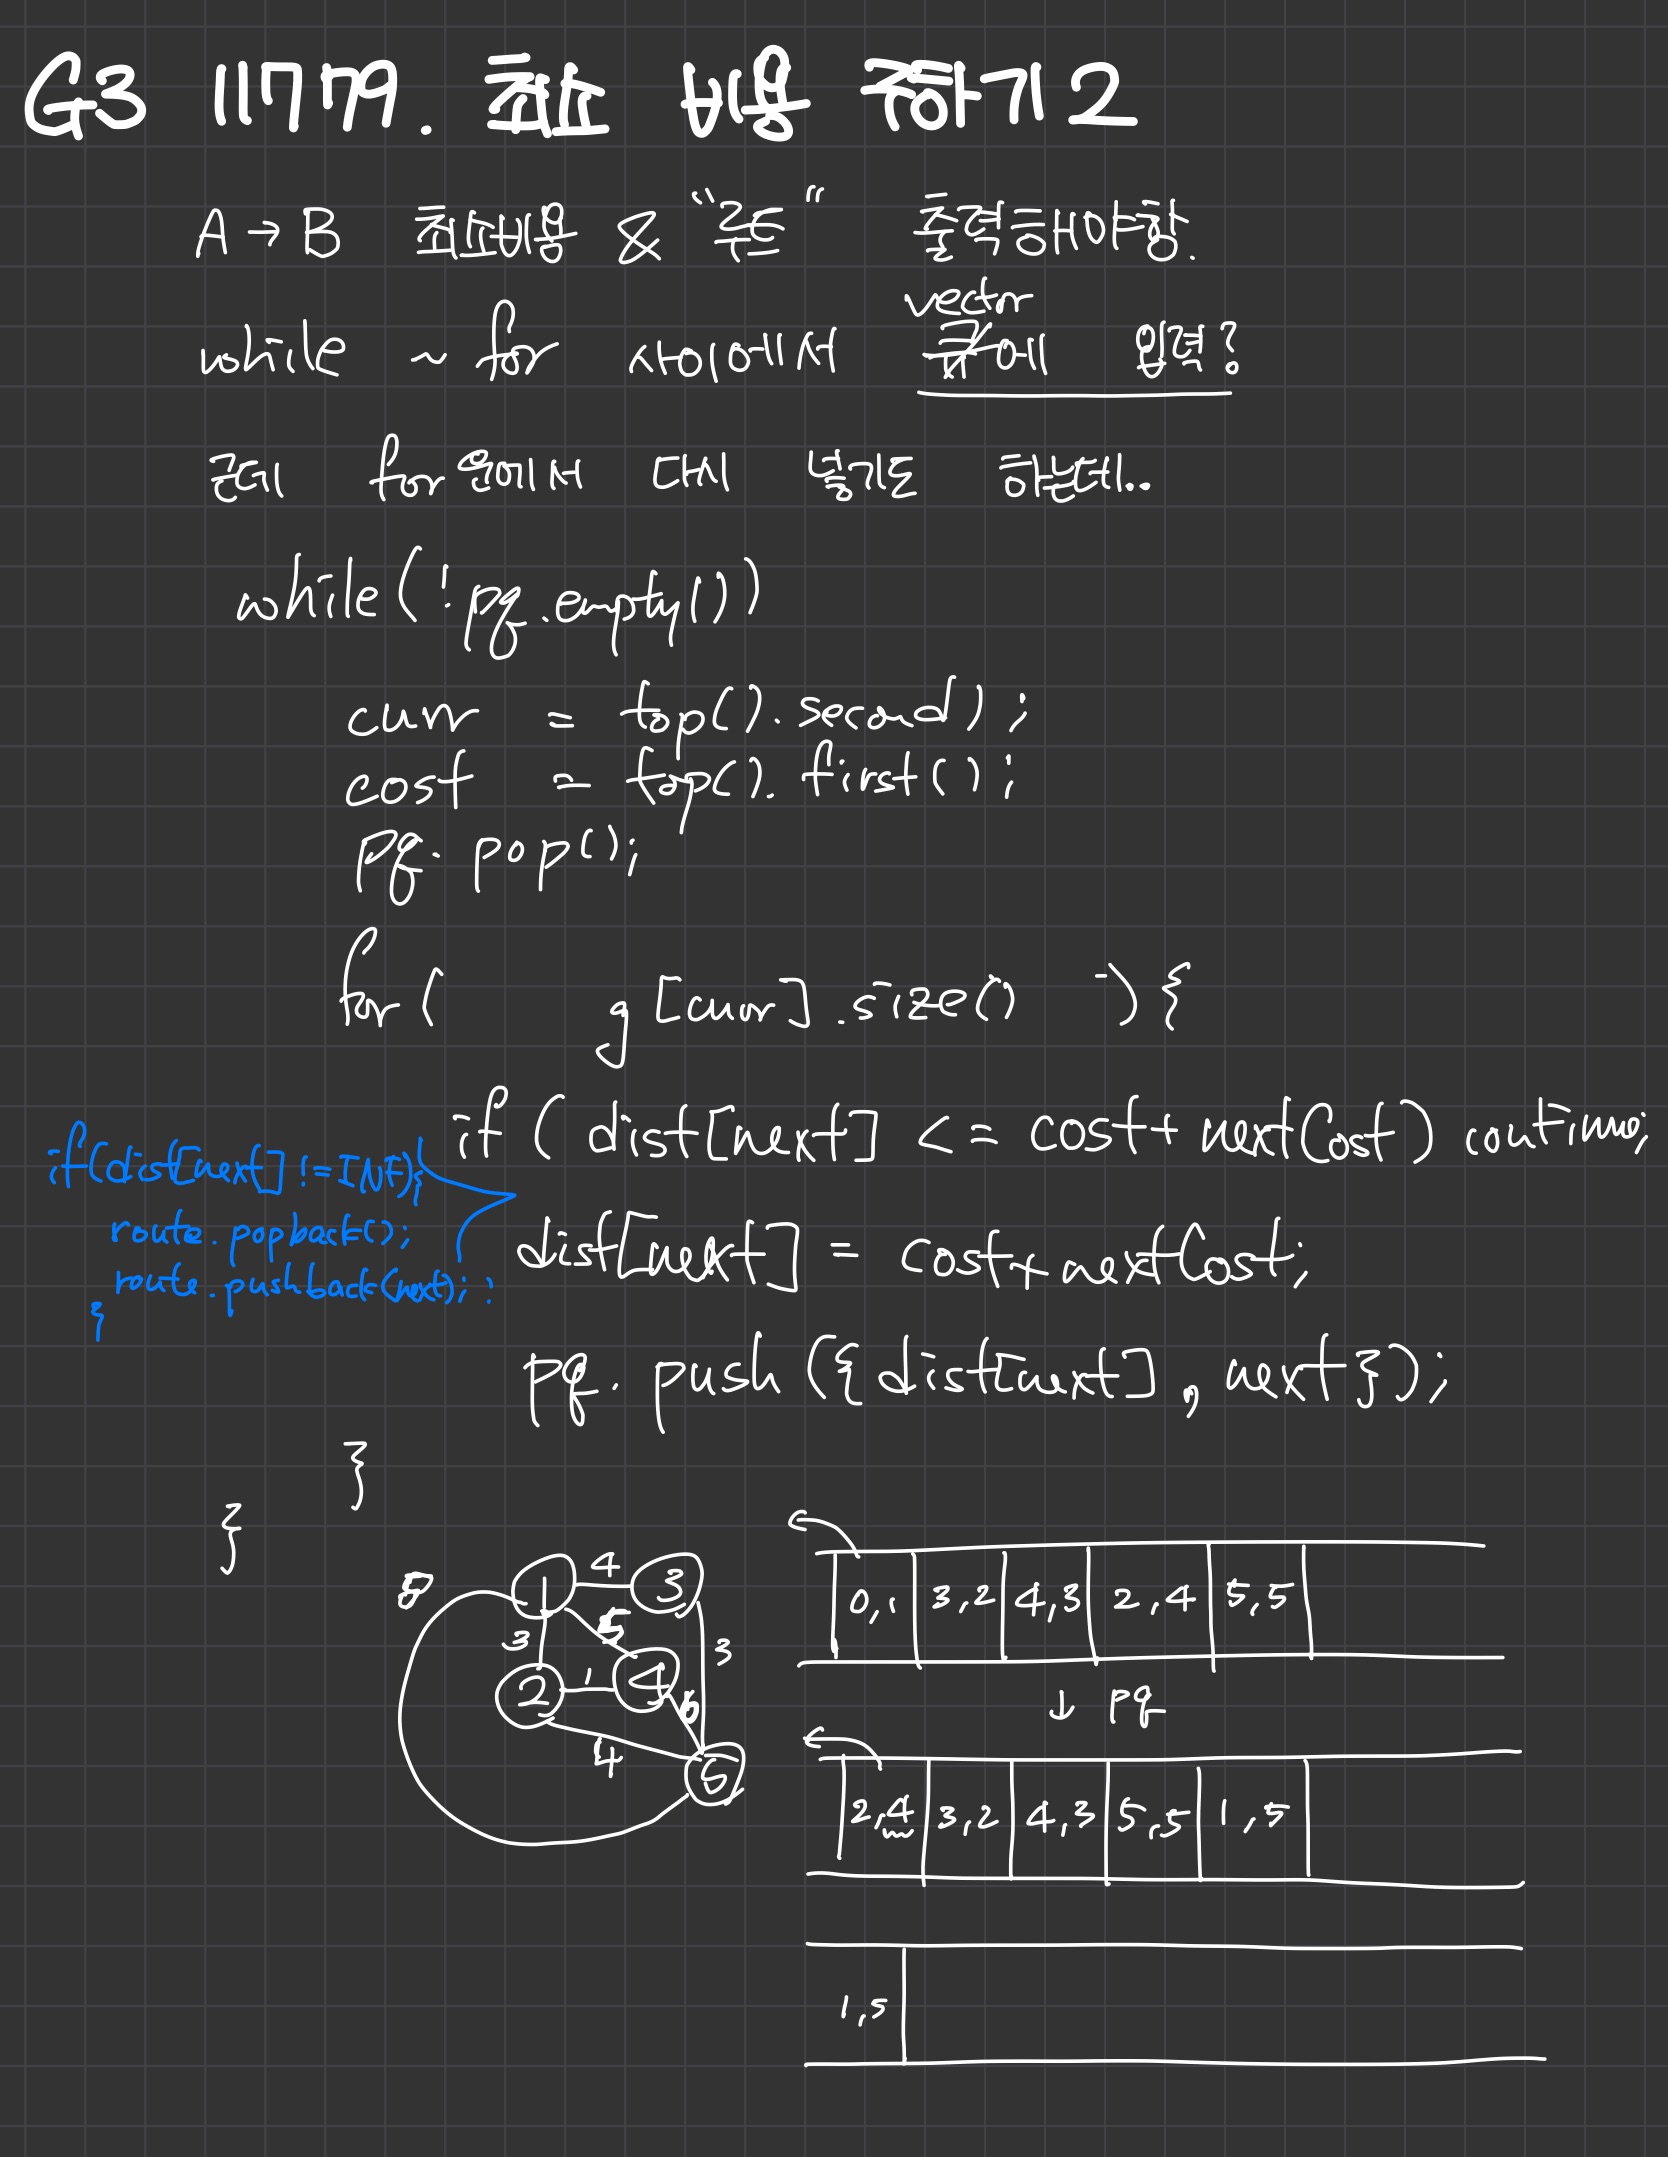 G3 11779. 최소 비용 구하기 2
A → B 최소비용 & "루트" 출력해야함.
vector
while ~ for 사이에서 큐에 입력?
근데 for문에서 다시 넣기도 하는데..
while(!pq.empty())
curr = top().second);
cost = top().first();
pq.pop();
for( g[curr].size() -){
if( dist[next] <= cost+nextCost) continue;
if(dist[next] != INF){
route.popback();
route.pushback(next);
}
dist[next] = cost+nextCost;
pq.push({dist[next], next});
}
}
1 4 3
8 3 5 3
2 1 4 6
4 5
0,1 3,2 4,3 2,4 5,5
↓ pq
2,4 3,2 4,3 5,5 1,5
1,5